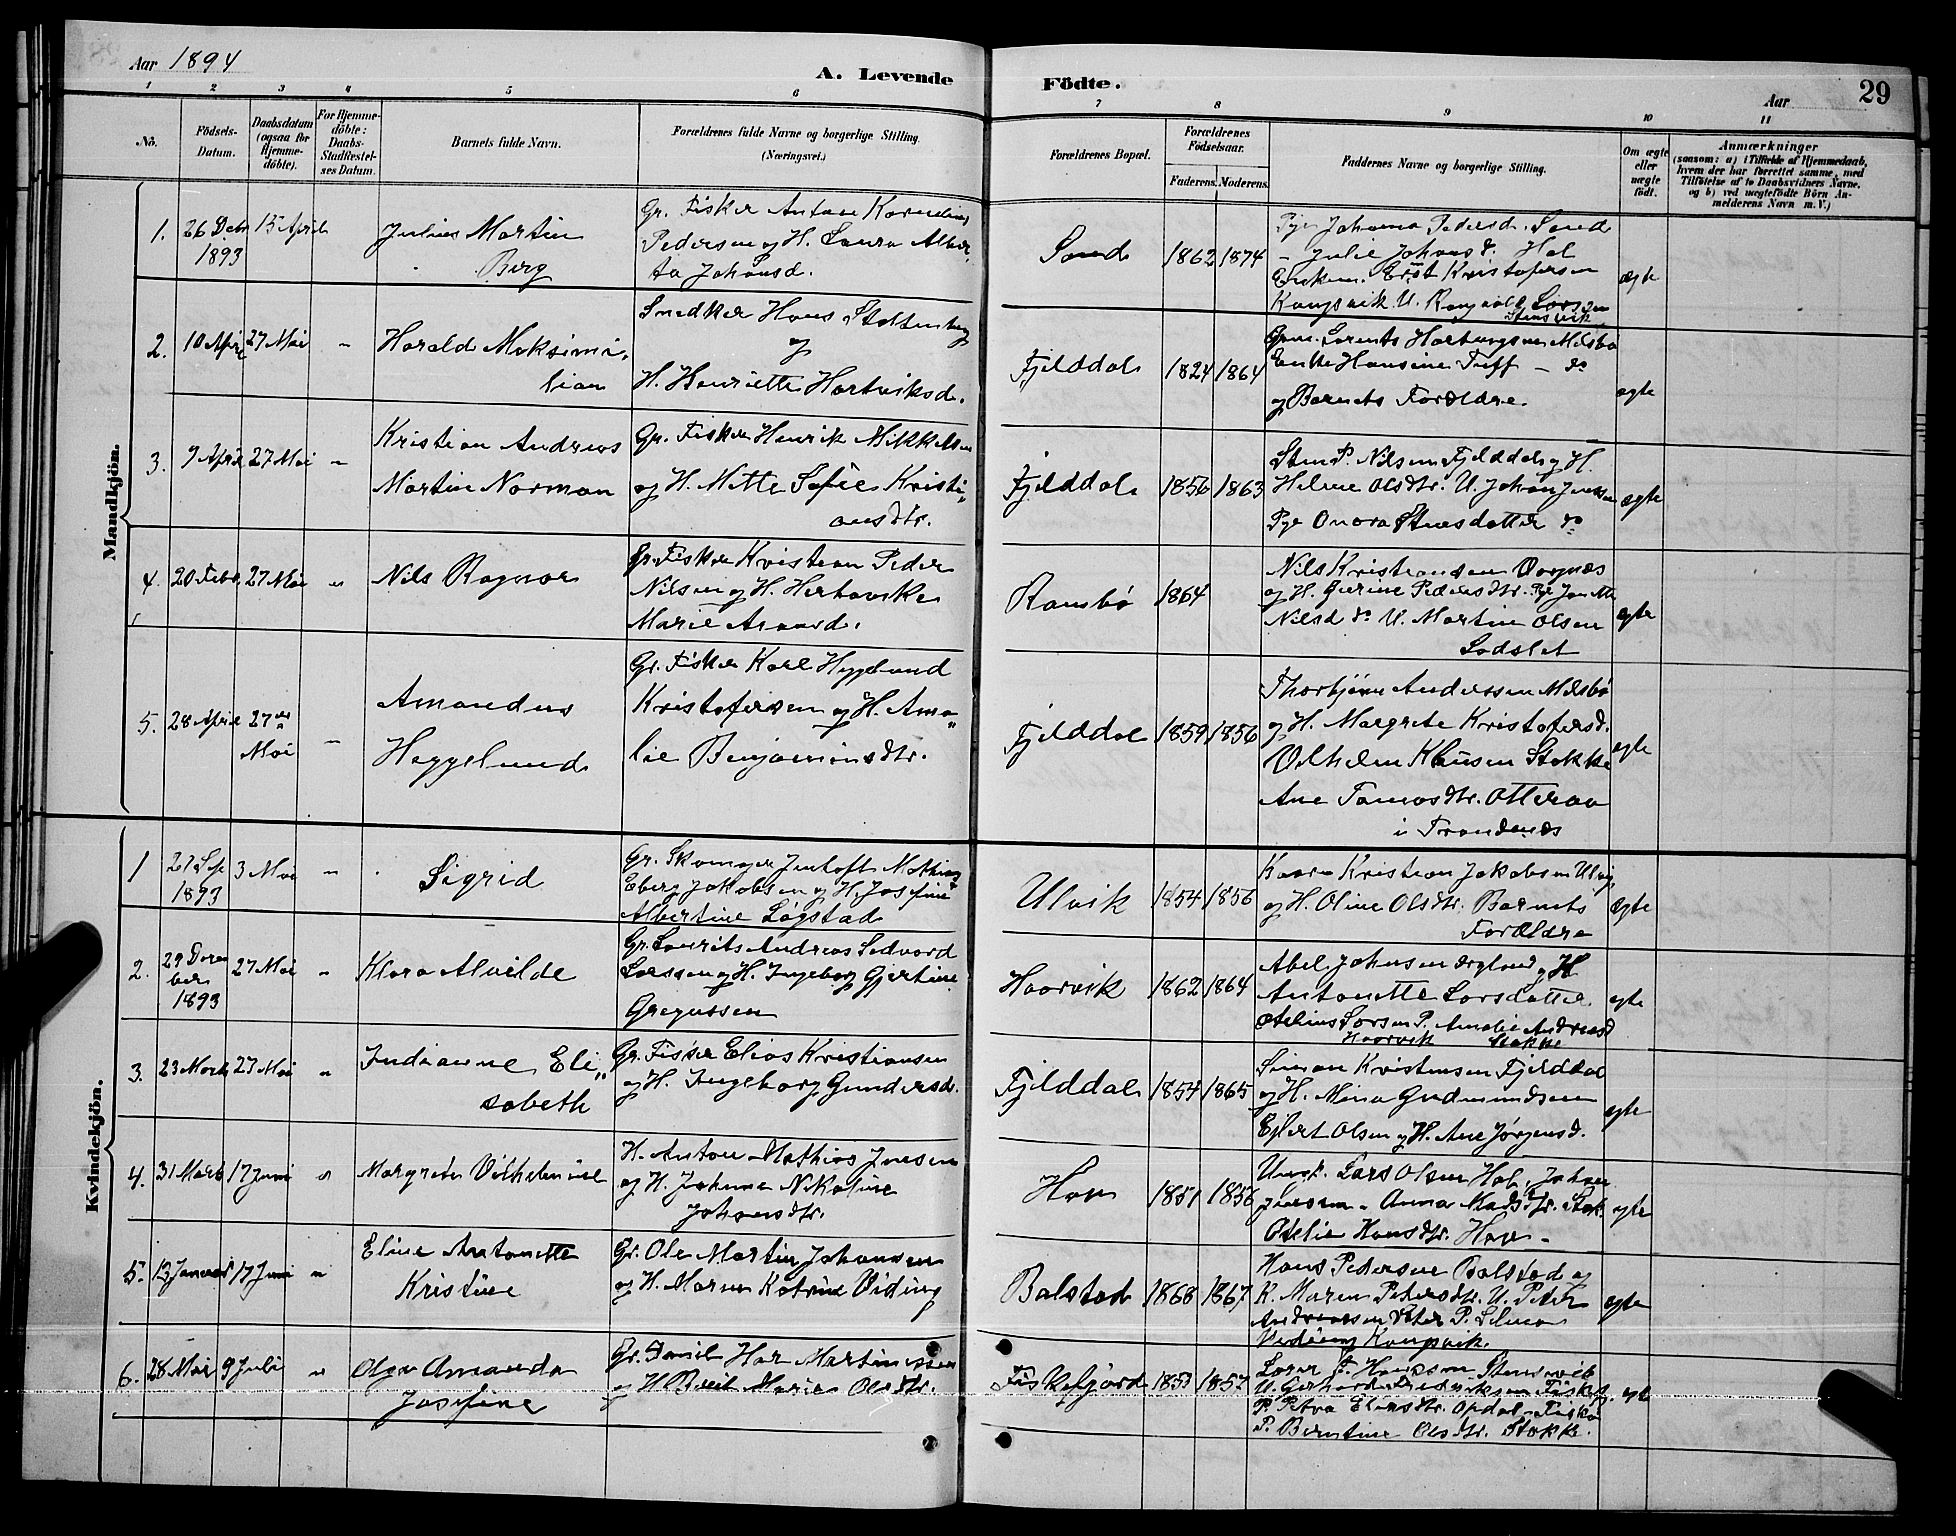 Aar 1894
A. Levende
Födte.
Aar
29
1 2 3 4 5 6
7 8 9 10 11
No.
Födsels-Datum.
Daabsdatum (ogsaa for Hjemme-döbte).
For Hjemme-döbte: Daabs-Stadfestel-ses Datum.
Barnets fulde Navn.
Forældrenes fulde Navne og borgerlige Stilling.
(Næringsvei.)
Forældrenes Bopæl.
Forældrenes Födselsaar.
Faderens. Moderens.
Faddernes Navne og borgerlige Stilling.
Om ægte eller uægte födt.
Anmærkninger
(saasom: a) i Tilfælde af Hjemmedaab, hvem der har forrettet samme, med Tilföielse af to Daabsvidners Navne. og b) ved uægtefödte Börn An-melderens Navn m. V.)
Mandkjön.
1. 26 Debr 1893 15 April
Julius Martin
Berg
Gr. Fisker Anton Kornelius
Pedersen og H. Laura Alber
ta Johansd.
Sand 1862 1874
Pige Johanna Pedersd. Sand
– Julie Johansd. Hol
Kristofersen
Kongsvik. U. Larsen
Stensvik
ægte
2. 10 April 27 Mai "
Harald Maksimi,
lian
Snedker Hans Stoltenberg
og
H. Henriette Hartviksd.
Fjelddal 1824 1864
Lorents
Enke Hansine – do
og Barnets Forældre.
ægte
3. 9 April 27 Mai "
Kristian Andreas
Martin Norman
Gr. Fisker Henrik Mikkelsen
og H. Mette Sofie Kristi"
ansdtr.
Fjelddal 1856 1863
Sten P. Nilsen Fjelddal og H.
Helene Olsdtr. U. Johan Jensen
Pige Onora Stensdatter do
ægte
4. 20 Febr 27 Mai "
Nils Ragnar
Gr. Fisker Kristian Peder
Nilsen og H. Hertavike
Marie
Ramsbø 1864
Nils Kristiansen
og H. Gurine Pedersdtr. Pige
Nilsd do U. Martin Olsen
Sodslet
ægte
5. 28 April 27de Mai "
Amandus
Heggelund
Gr. Fisker Karl Heggelund
Kristofersen og H. Ama"
lie Benjaminsdtr.
Fjelddal 1859 1856
Thorbjørn Anderssen
og H. Margrete Kristofersd.
Vilhelm Klausen Stokke
Ane Tomasdtr. Otteraa
i Trondenes
ægte
Kvindekjön.
1 1893 3 Mai "
Sigrid
Gr. Jentoft Mathias
Eberg Jakobsen og H. Josefine
Albertine Løgstad
Ulvik 1854 1856
Kristian Jakobsen Ulvig
og H. Oline Olsdtr. Barnets
Forældre
ægte
2. 29 1893 27 Mai "
Klara Alvilde
Gr. Laurits Andreas Sedvard
Larssen og H. Ingeborg Gjertine
Gregussen
Haarvik 1862 1864
Abel Johnsen og H
Antonette Larsdatter
Larsen P. Amalie Andreasd
Haarvik Stokke
ægte
3. 23 Marts 27 Mai "
Indianne Eli"
sabeth
Gr. Fisker Elias Kristiansen
og H. Ingeborg Gundersd.
Fjelddal 1854 1865
Simon Kristensen Fjelddal
og H. Mina Gudmundsen
Ejlert Olsen og H. Ane Jørgensd.
ægte
4. 31 Marts 17 Juni "
Margrete Vilhelmine
H. Anton Mathias Jensen
og H. Johanna Nikoline
Johansdtr.
Hov 1851 1856
Ungk. Lars Olsen Hol, Johan
Anna Madsdtr. Stok.
Otelie Hansdtr. Hov –
ægte
5. 13 Januar 17 Juni "
Eline Antonette
Kristine
Gr. Ole Martin Johansen
og H. Maren Katrine Viding
Balstad 1868 1867
Hans Pedersen Balstad og
K. Maren Petersdtr. U. Peter
Andreassen P.
Kongsvik.
ægte
6. 28 Mai 9 Juli "
Olga Amanda
Josefine
Gr. Emil Martinussen
og H. Berit Marie Olsdtr.
Fiskefjord 1853 1857
Hanssen Stensvik
U. Gerhard Fredriksen Fiskefj.
P. Petra
P. Berntine Olsdtr. Stokke.
ægte